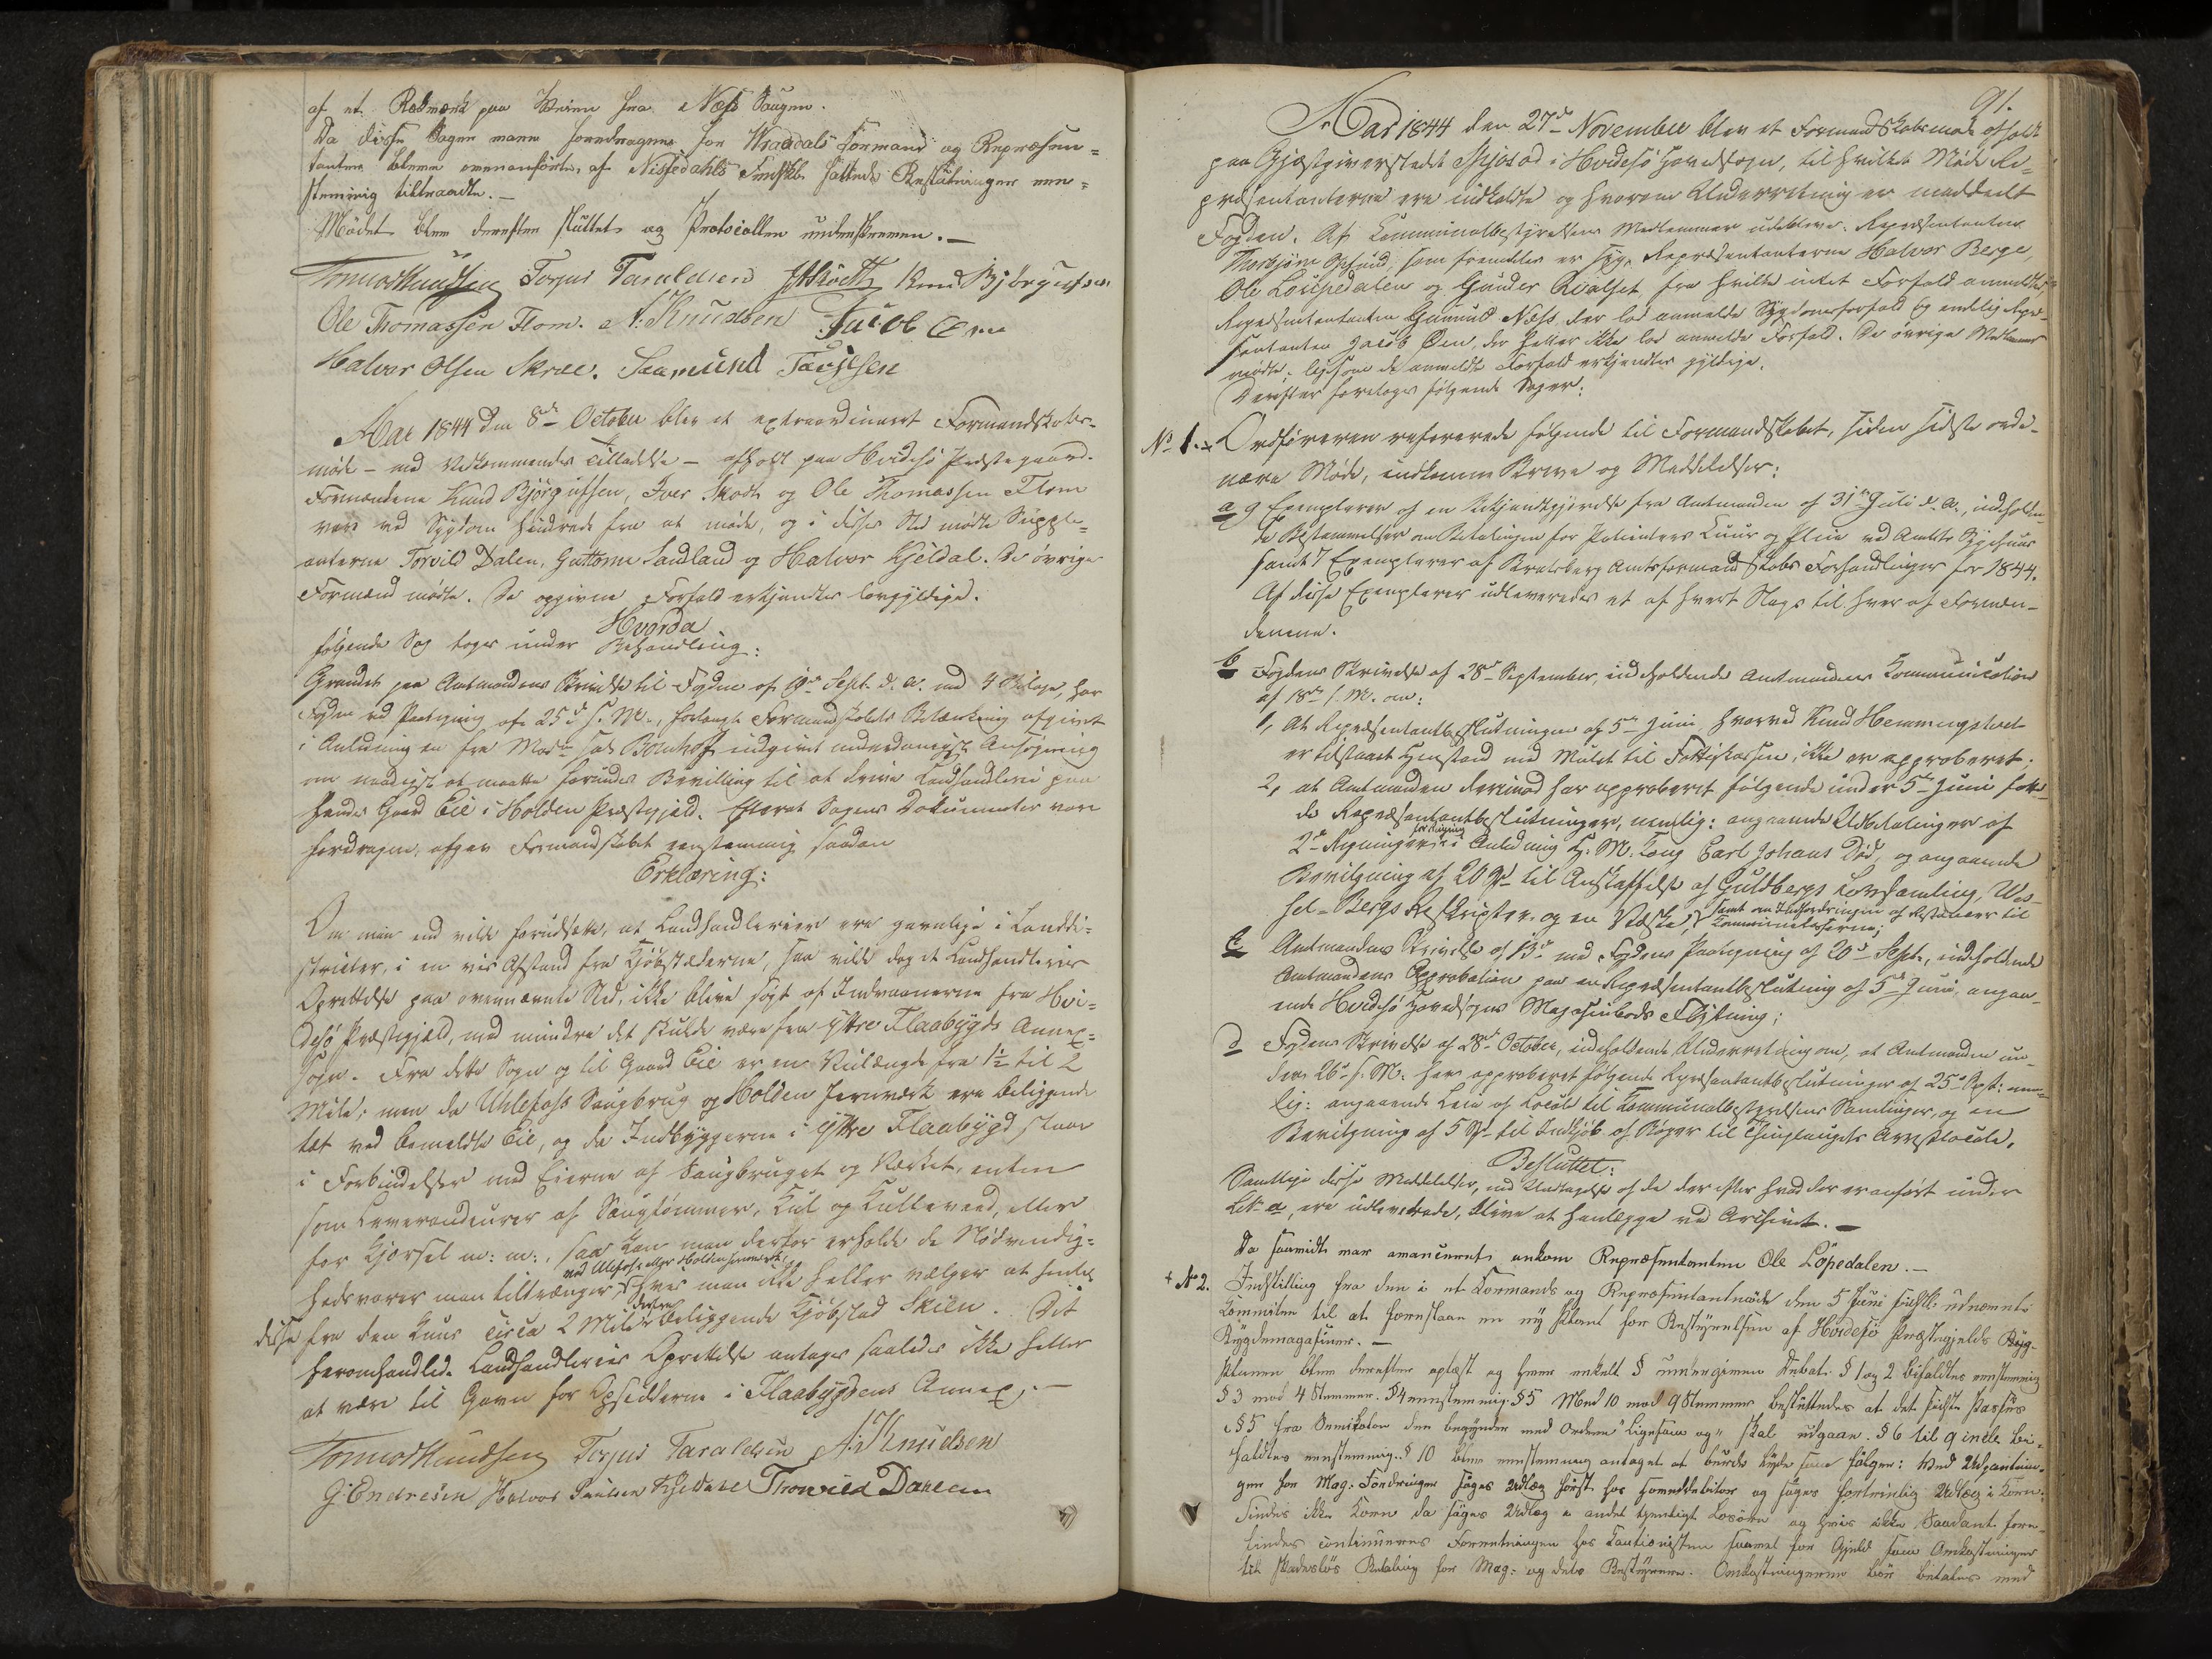 af et Rodmærk paa Veien fra Næs Saugen.
Da disse Sager vare foredragne for Vraadals Formænd og Repræsen=
tanter bleve ovenanførte, af Nissedahls Frmskb. fattede Beslutninger een=
stemmig tiltraadte.—
Mødet blev derefter sluttet og Protocollen underskreven.—
Tormod Knudsen Torjus Taraldsen Knud Bjørgufsen
Ole Thomassen Flom. A: Knudsen Jacob Øen
Halvor Olsen Skree. Saamund Tarjesen
Aar 1844 den 8de October blev et extraordinært Formandskabs-
møde - med Vedkommendes Tilladelse - afholdt paa Hvidesø Præstegaard.
Formændene Knud Bjørgufsen, Iver Skodt og Ole Thomassen Flom
vare ved Sygdom hindrede fra at møde, og i disses Sted mødte Supple-
anterne Torvild Dalen, Guttorm Sandland og Halvor Kjeldal. De øvrige
Formænd mødte. De opgivne Forfald erkjendtes lovgyldige.
Hvorda
følgende Sag toges under Behandling:
Grundet paa Amtmandens Skrivelse til Fogden af 9de Sept. d. A. med 4 Bilage, har
Fogden ved Paategning af 25de s. M., forlangt Formandskabets Betænkning afgivet
i Anledning en fra Mads. Bornhoft indgivet underdanigst Ansøgning
om naadigst at maatte forundes Bevilling til at drive Landhandleri paa
hendes Gaard Eie i Holden Præstegjeld. Efterat Sagens Dokumenter vare
foredragne, afgav Formandskabet eenstemmig saadan
Erklæring:
Om man end vilde forudsætte, at Landhandlerier ere gavnlige i Landdi-
strikter, i en vis Afstand fra Kjøbstæderne, saa vilde dog et Landhandleries
Oprettelse paa ovennævnte Sted, ikke blive søgt af Indvaanerne fra Hvi=
desø Præstegjeld, med mindre det skulde være fra Yttre Flaabygds Annex=
sogn. Fra dette Sogn og til Gaard Eie er en Veilængde fra 1½ til 2
Mile; men da Uhlefoss Saugbrug og Holden Jernværk ere beliggende
tæt ved bemeldte Eie, og da Indbyggerne i Yttre Flaabygd staae
i Forbindelse med Eierne af Saugbruget og Værket, enten
som Leverandeurer af Saugtømmer, Kul og Kulleveed, eller
for Kjørsel m: m:, saa kan man derfor erholde de Nødvendig=
hedsvarer man tiltrænger, ved Ulefoss eller Holden Jernværk, hvis man ikke heller vælger at hente
disse fra den kuns circa 2 Mile derfra beliggende Kjøbstad Skien. Det
heromhandlede Landhandleries Oprettelse antages saaledes ikke heller
at være til Gavn for Opsidderne i Flaabygdens Annex.—
Tormod Knudsen Torjus Taraldsen A: Knudsen
G: Endresen Halvor Paulsen Kjeldale Thorvild Dalen
91.
Aar 1844 den 27de November blev et Formandskabsmøde afholdt
paa Gjæstgiverstedet Spjosod i Hvidesø Hovedsogn, til hvilket Møde Re=
præsentanterne ere indkaldte og hvorom Underretning er meddeelt
Fogden. Af Communalbestyrelsens Medlemmer udebleve: Repræsentanten
Thorbjørn Opsund, som fremdeles er syg, Repræsentanterne Halvor Berge,
Ole Loupedalen og Gunder Kvalset, fra hvilke intet Forfald anmeldtes,
Repræsentanten Gunnuld Næss, der lod anmelde Sygdomsforfald og endelig Repræ-
sentanten Jacob Øen, der heller ikke lod anmelde Forfald. De øvrige Medlemmer
mødte, ligesom de anmeldte Forfald erkjendtes gyldige.
Derefter foretoges følgende Sager:
No 1. Ordføreren refererede følgende til Formandskabet, siden sidste ordi-
nære Møde, indkomne Breve og Meddelelser:
a, 9 Exemplarer af en Bekjendtgjørelse fra Amtmanden af 31te Juli d. A., indeholden-
de Bestemmelser om Betalingen for Patienters Kuur og Pleie ved Amtets Sygehuus
samt 7 Exemplarer af Bratsberg Amtsformandskabs Forhandlinger for 1844.
Af disse Exemplarer udleveredes et af hvert Slags til hver af Formæn-
dene.
b Fogdens Skrivelse af 28de September, indeholdende Amtmandens Communication
af 18de s. M. om:
1, At Repræsentantbeslutningen af 5te Juni, hvorved Knud Hemmingstvedt
er tilstaaet Henstand med Mulct til Fattigkassen, ikke er approberet;
2, at Amtmanden derimod har approberet følgende under 5te Juni fatte-
de Repræsentantbeslutninger, nemlig: angaaende Udbetalinger af
2de Regninger for Ringning i Anledning H. M. Kong Carl Johans Død, og angaaende
Bevilgning af 20 Spd til Anskaffelse af Guldbergs Lovsamling, Wes-
sel-Bergs Reskripter og en Væske, samt om Inddrivningen af Restancer til Kommunekasserne;
c Amtmandens Skrivelse af 13de med Fogdens Paategning af 20de Sept., indeholdende
Amtmandens Approbation paa en Repræsentantbeslutning af 5te Juni, angaa-
ende Hvidesø Hovedsogns Magasinbods Flytning;
d Fogdens Skrivelse af 28de October, indeholdende Underretning om, at Amtmanden un-
der 26de s. M. har approberet følgende Repræsentantbeslutninger af 25de Sept: nem-
lig: angaaende Leie af Locale til Kommunalbestyrelsens Samlinger, og en
Bevilgning af 5 Spd til Indkjøb af Røger til Thinglaugets Arrestlocale.
Besluttet:
Samtlige disse Meddelelser, med Undtagelse af de der efter hvad der er anført under
Litr. a, ere udleverede, blive at henlægge ved Archivet.—
Da saavidt var avanceret, ankom Repræsentanten Ole Löpedalen.—
No 2. Indstilling fra den i et Formands og Repræsentantmøde den 5 Juni sidstl. udnævnte
Committee til at foreslaae en ny Plan for Bestyrelsen af Hvidesø Præstegjelds Byg-
Bygdemagasiner.—
Planen blev derefter oplæst og hver enkelt § undergiven Debat. § 1 og 2 bifaldtes eenstemmig
§ 3 mod 4 Stemmer. § 4 eenstemmig. § 5 Med 10 mod 9 Stemmer besluttedes at det sidste Passus
i § 5 fra Semikolon den begynder med Ordene "Ligesom og" skal udgaae. § 6 til 9 incl. bi-
faldtes eenstemmig. § 10 blev eenstemmig antaget at burde lyde som følger: Ved Udpantnin-
ger for Mag: Fordringer søges Udlæg først hos Hoveddebitor og søges fortrinlig Udlæg i Korn.
Findes ikke Korn da søges Udlæg i andet tjenligt Løsøre og hvis ikke Saadant fore-
findes continueres Forretningen hos Cautionisten saavel for Gjeld som Omkostninger
til skadesløs Betaling for Mag: og dets Bestyrere. Omkostningerne bør betales med